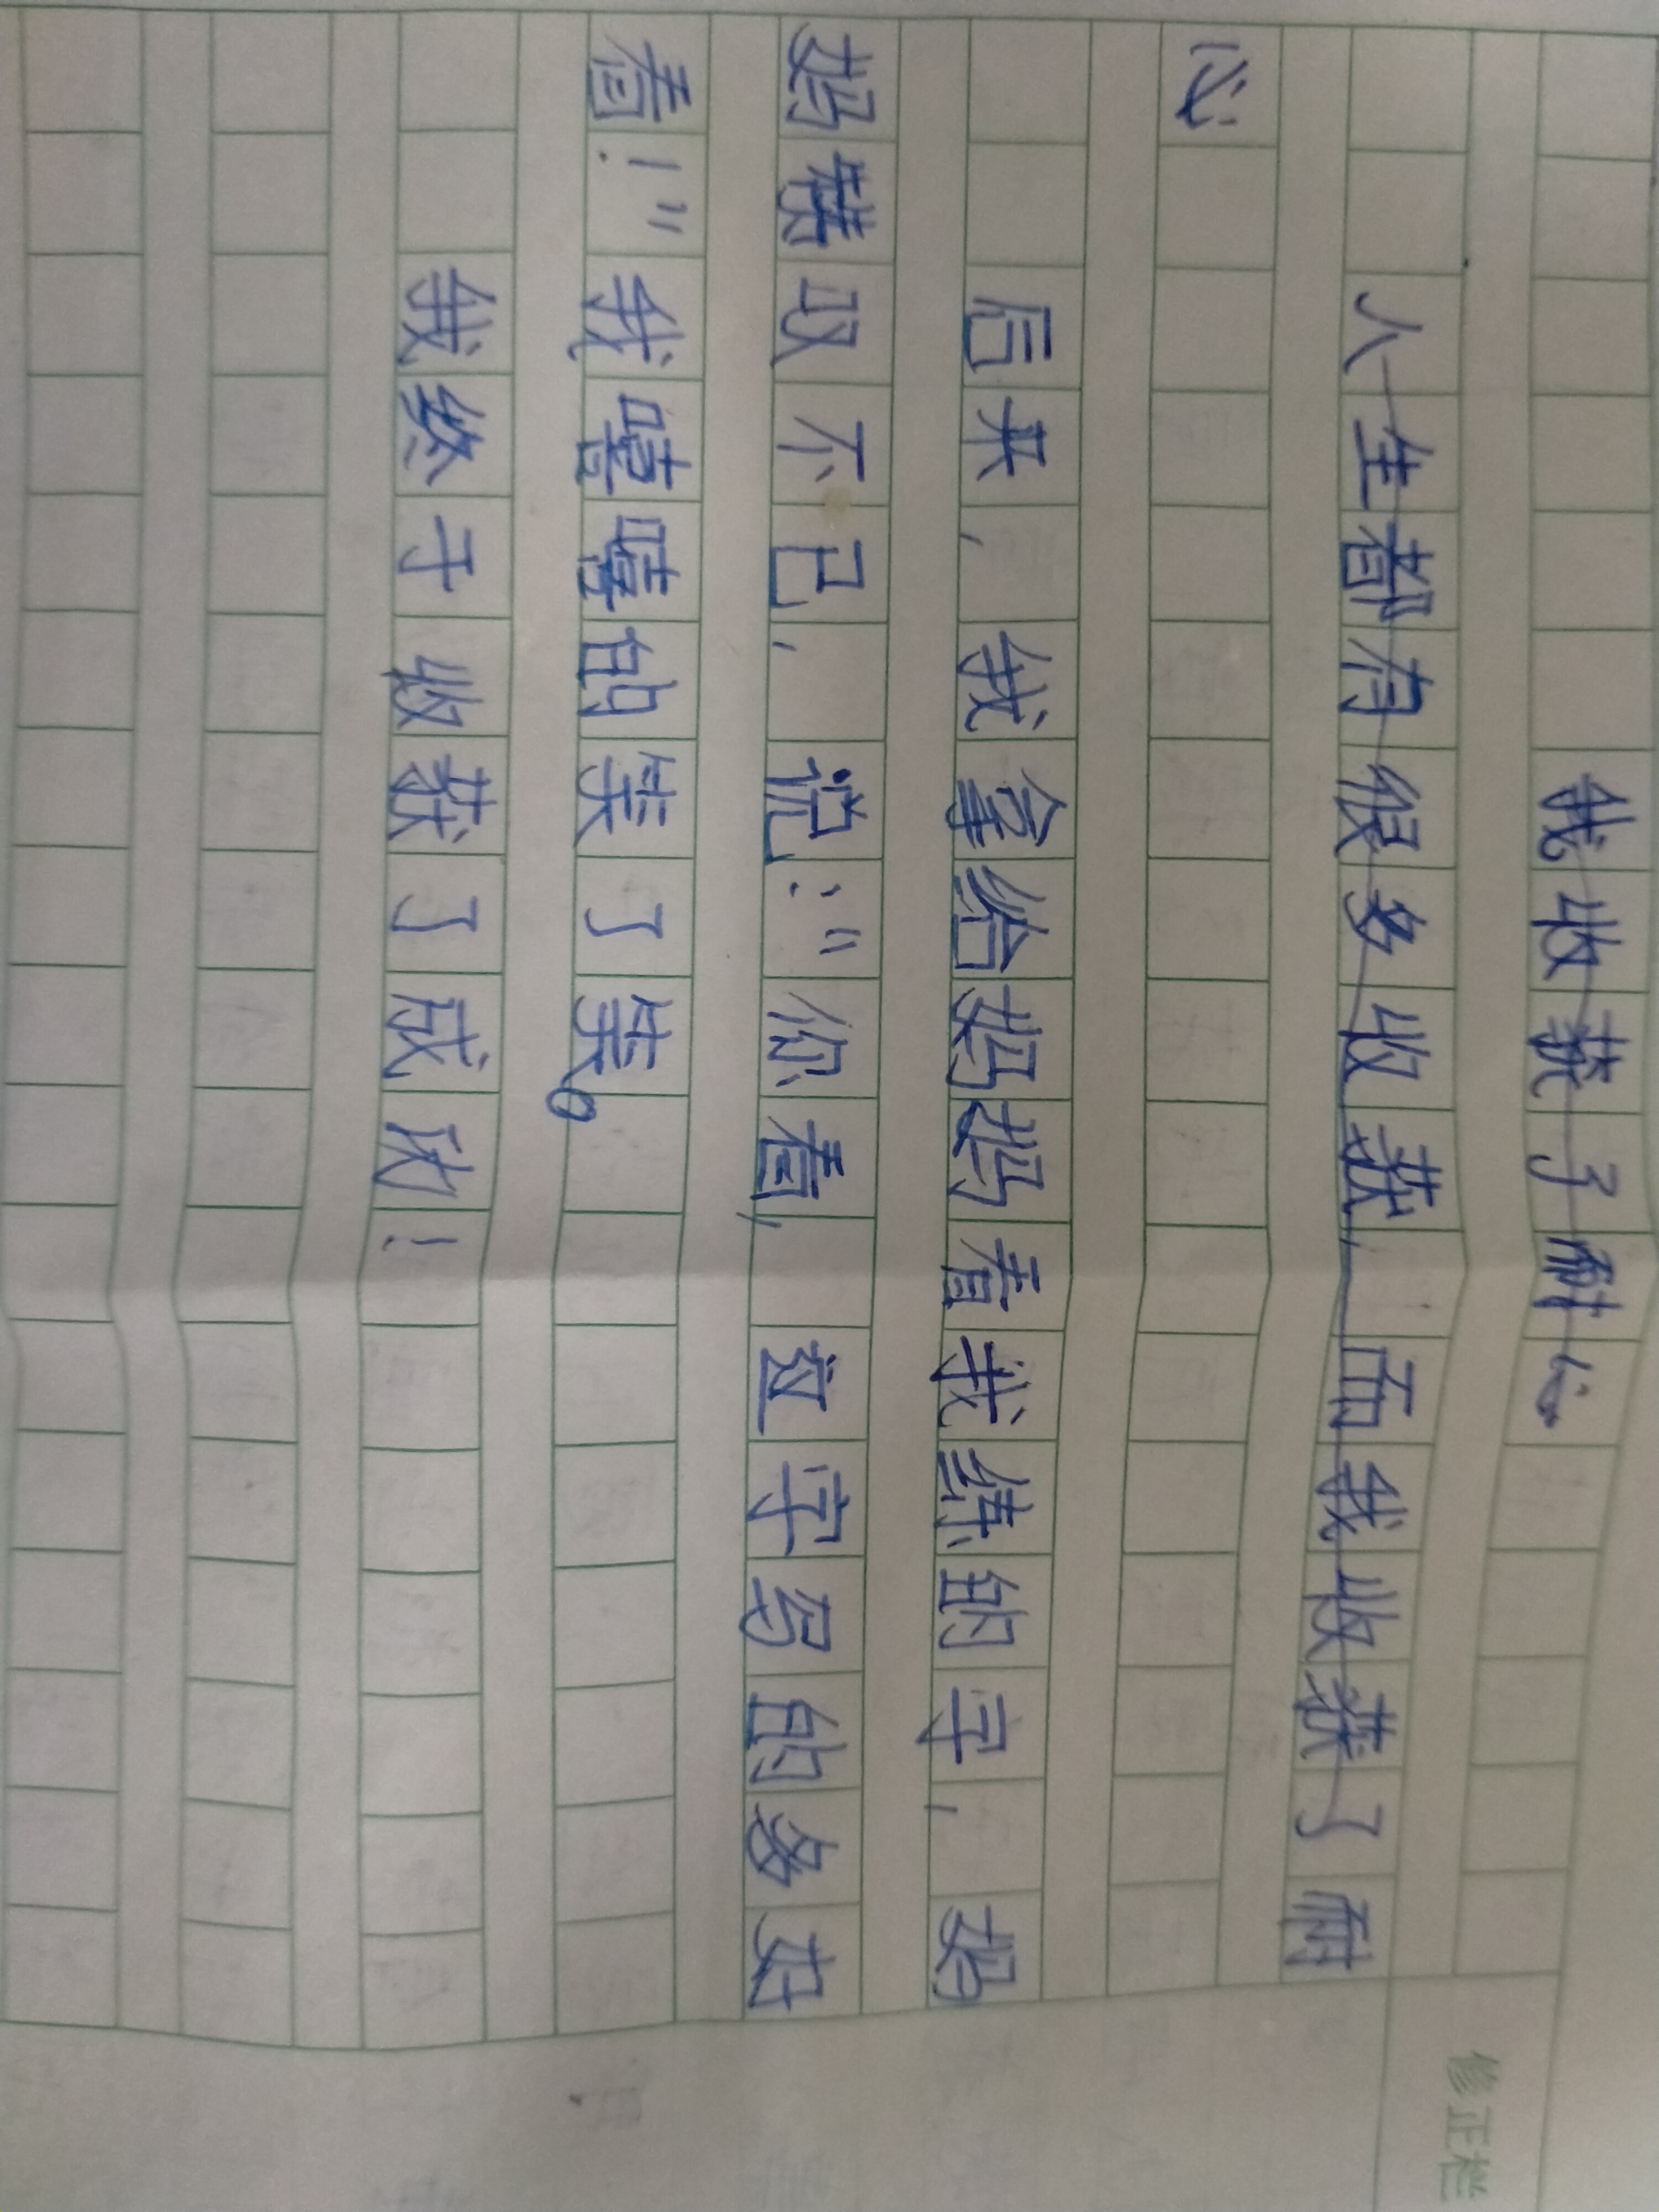 我收获了耐心
人生都有很多收获，而我收获了耐
心
后来，我拿给妈妈看我练的字，妈
妈赞叹不已，说：“你看，这字写的多好
看！”我嘻嘻的笑了笑。
我终于收获了成功！
修正栏